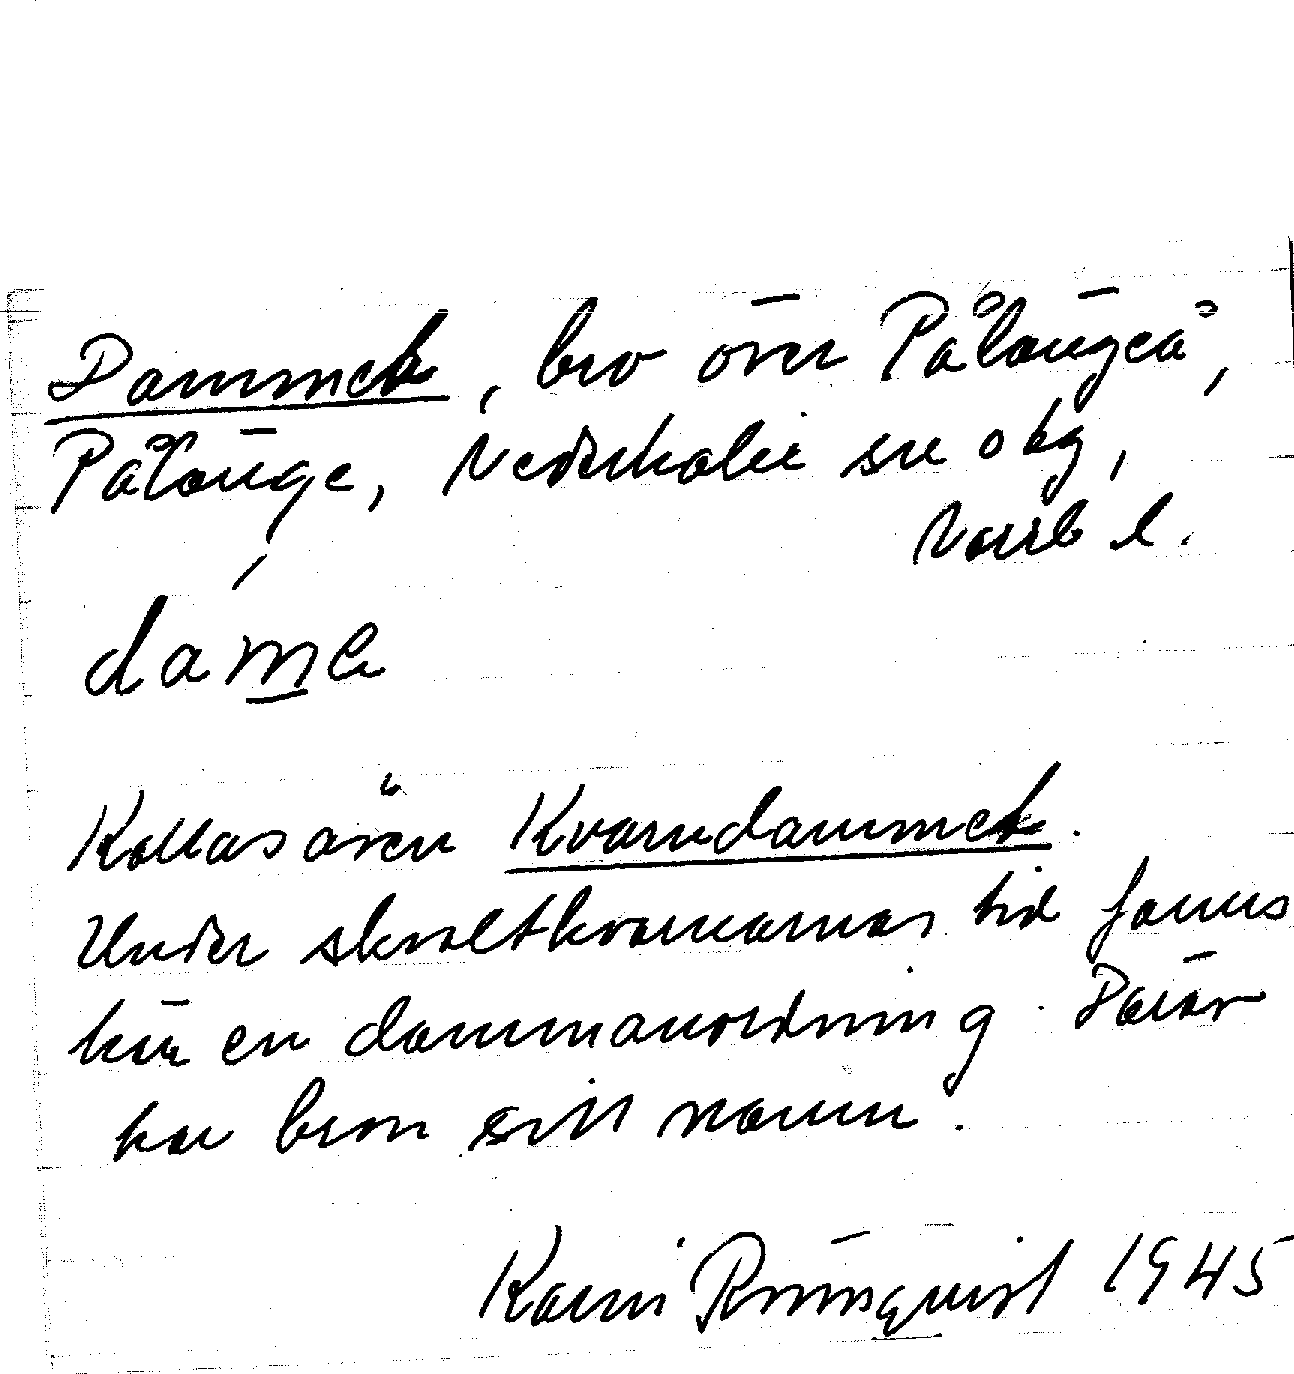 Dammet, bro över Pålängeå,
Pålänge, Nederkalix sn o tg,
Norrb l.
dám̲e
Kallas även Kvarndammet.
Under skvaltkvarnarnas tid fanns
här en dammanordning. Därav
har bron sitt namn.
Karin Rönnquist 1945